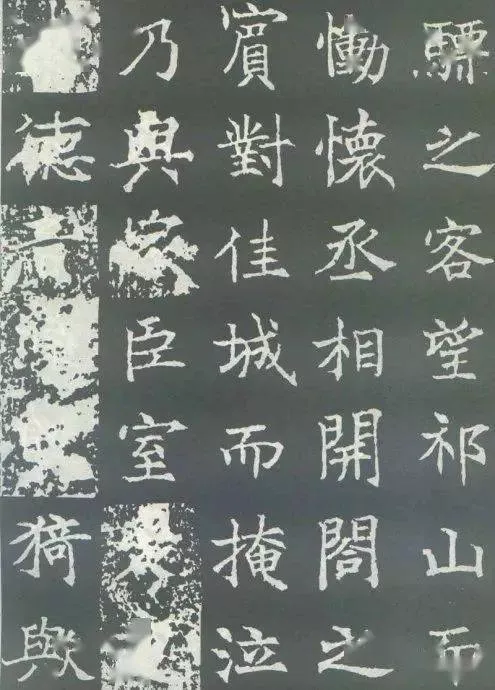 驃之客望祁山而
慟懷丞相開閤之
賓對佳城而掩泣
乃與家臣室
德音猗歟